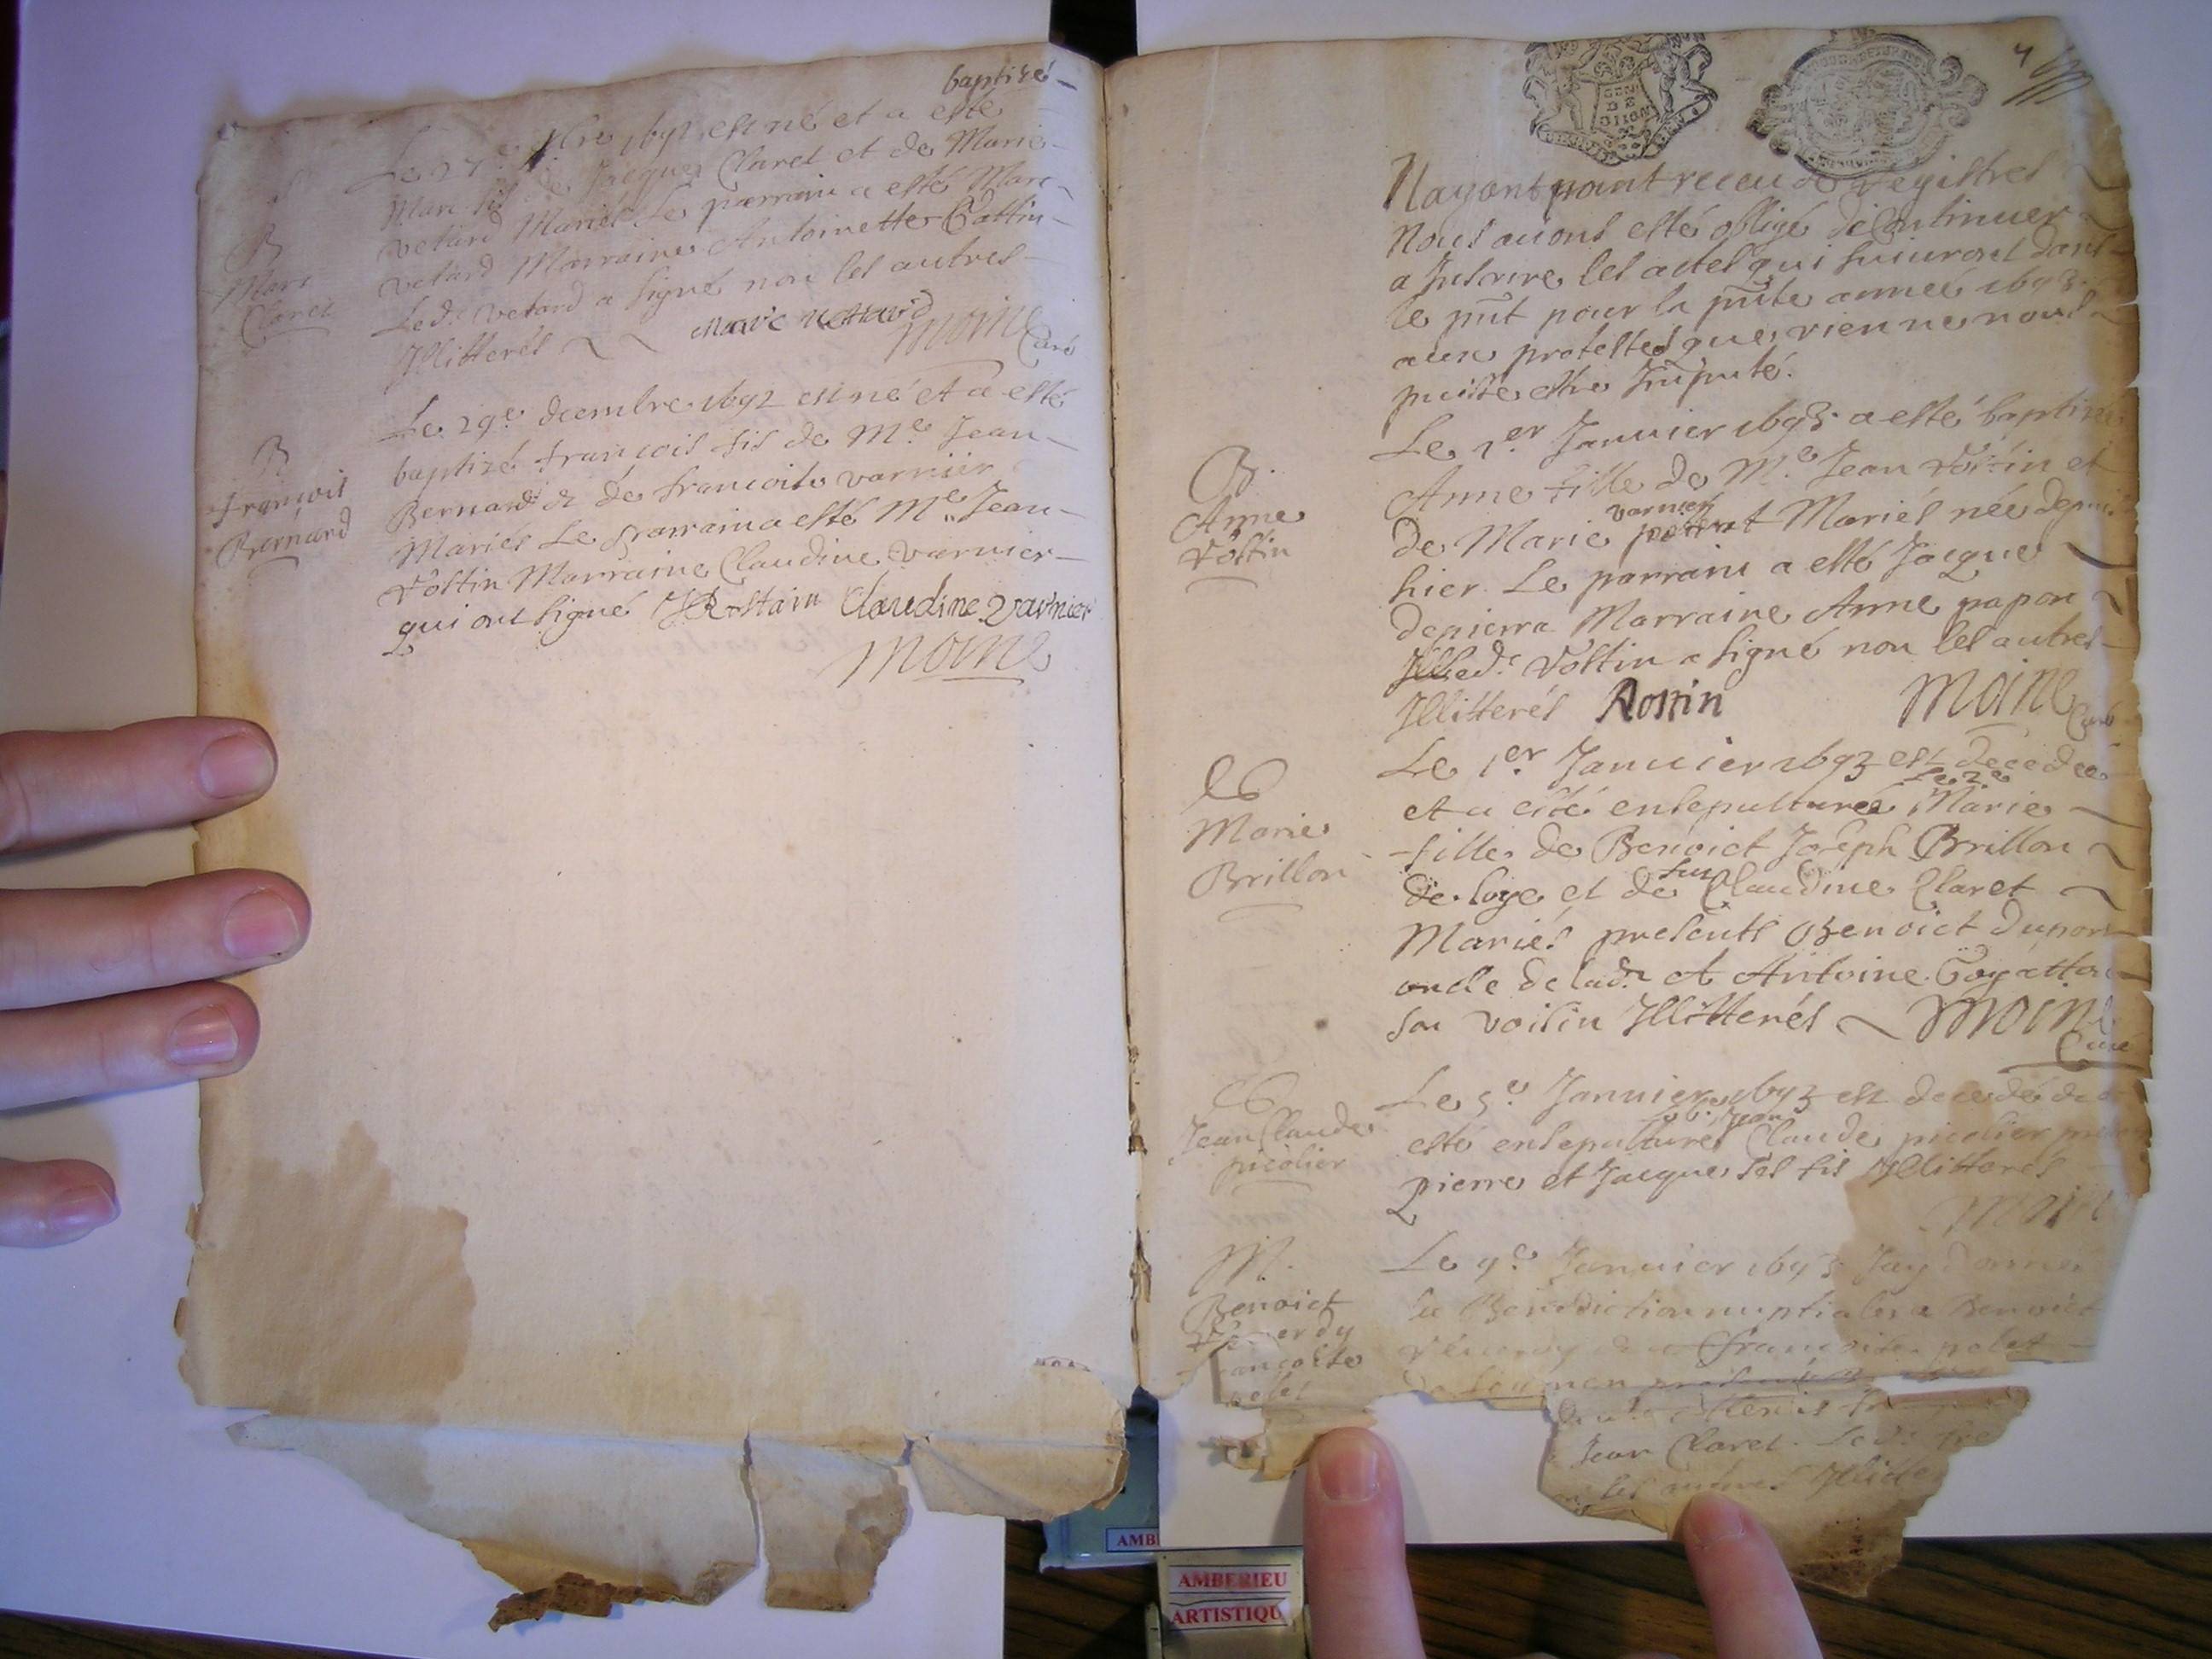 baptisé
Le 27e xbre 1692 est né et a esté
Marc fils de Jacques Claret et de Marie
vetard Mariés Le parrain a esté Marc
vetard Marraine Antoinette Cattin
Led. vetard a signé non les autres
Illitterés
Marc Vettard
Moine Curé
B
Marc
Claret
Le 29e decembre 1692 est né et a esté
baptizé françois fis de Me Jean
Bernard et de francoise varnier
Mariés Le parrain a esté Me Jean
Rostin Marraine Claudine varnier
qui ont signé JRostain Claudine Varnier
Moine
B
françois
Bernard
4
Nayant point receu de Registres
Nous avons esté obligé de Continuer
a Inscrire les actes qui suivront dans
le pnt pour la pnte année 1693
avec protestes que rien ne nous
puisse estre Imputé.
B.
Anne
Rostin
Le 1er Janvier 1693 a esté baptizée
Anne fille de Me Jean Rostin et
varnier
de Marie Mariés née depuis
hier. Le parrain a esté Jacque
depierra Marraine Anne papon
Led. Rostin a signé non les autres
Illitterés Rostin Moine Curé
Marie
Brillon
Le 1er Janvier 1693 est decedée
Le 2e
et a esté ensepulturée Marie
fille de Benoict Joseph Brillon
de loye et de fue Claudine Claret
Mariés presents Benoict dupon
oncle de lad. et Antoine Goyatton
son voisin Illitterés Moine
Curé
Jean Claude
picolier
Le 5e Janvier 1693 est decedé
esté ensepulturé Jean Claude picolier
pierre et Jacque ses fis Illitterés
Moine
M.
Benoict
francoise
polet
Le 9e Janvier 1693 Jay donné
la Benediction nuptiale a Benoict
francoise polet
Jean Claret. Led.
les autres Illitte
AMBERIEU
ARTISTIQU